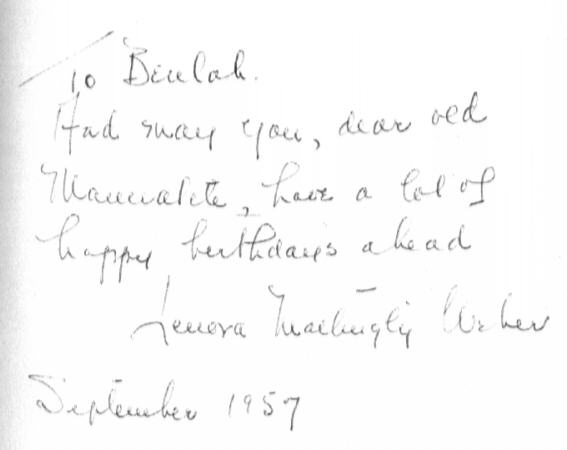 To Beulah.
And may you, dear old
Manualite, have a lot of
happy birthdays ahead
Lenora Mattingly Weber
September 1957